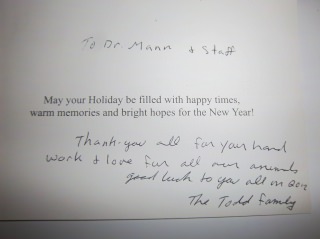 To Dr. Mann & Staff
May your Holiday be filled with happy times,
warm memories and bright hopes for the New Year!
Thank-you all for your hard
work & love for all our animals
good luck to you all in 2012
The Todd Family